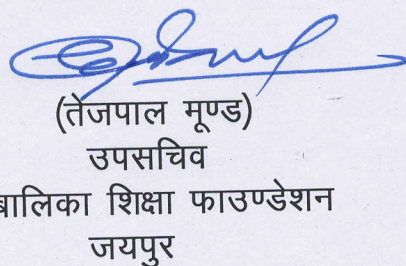 (तेजपाल मूण्ड)
उपसचिव
बालिका शिक्षा फाउण्डेशन
जयपुर